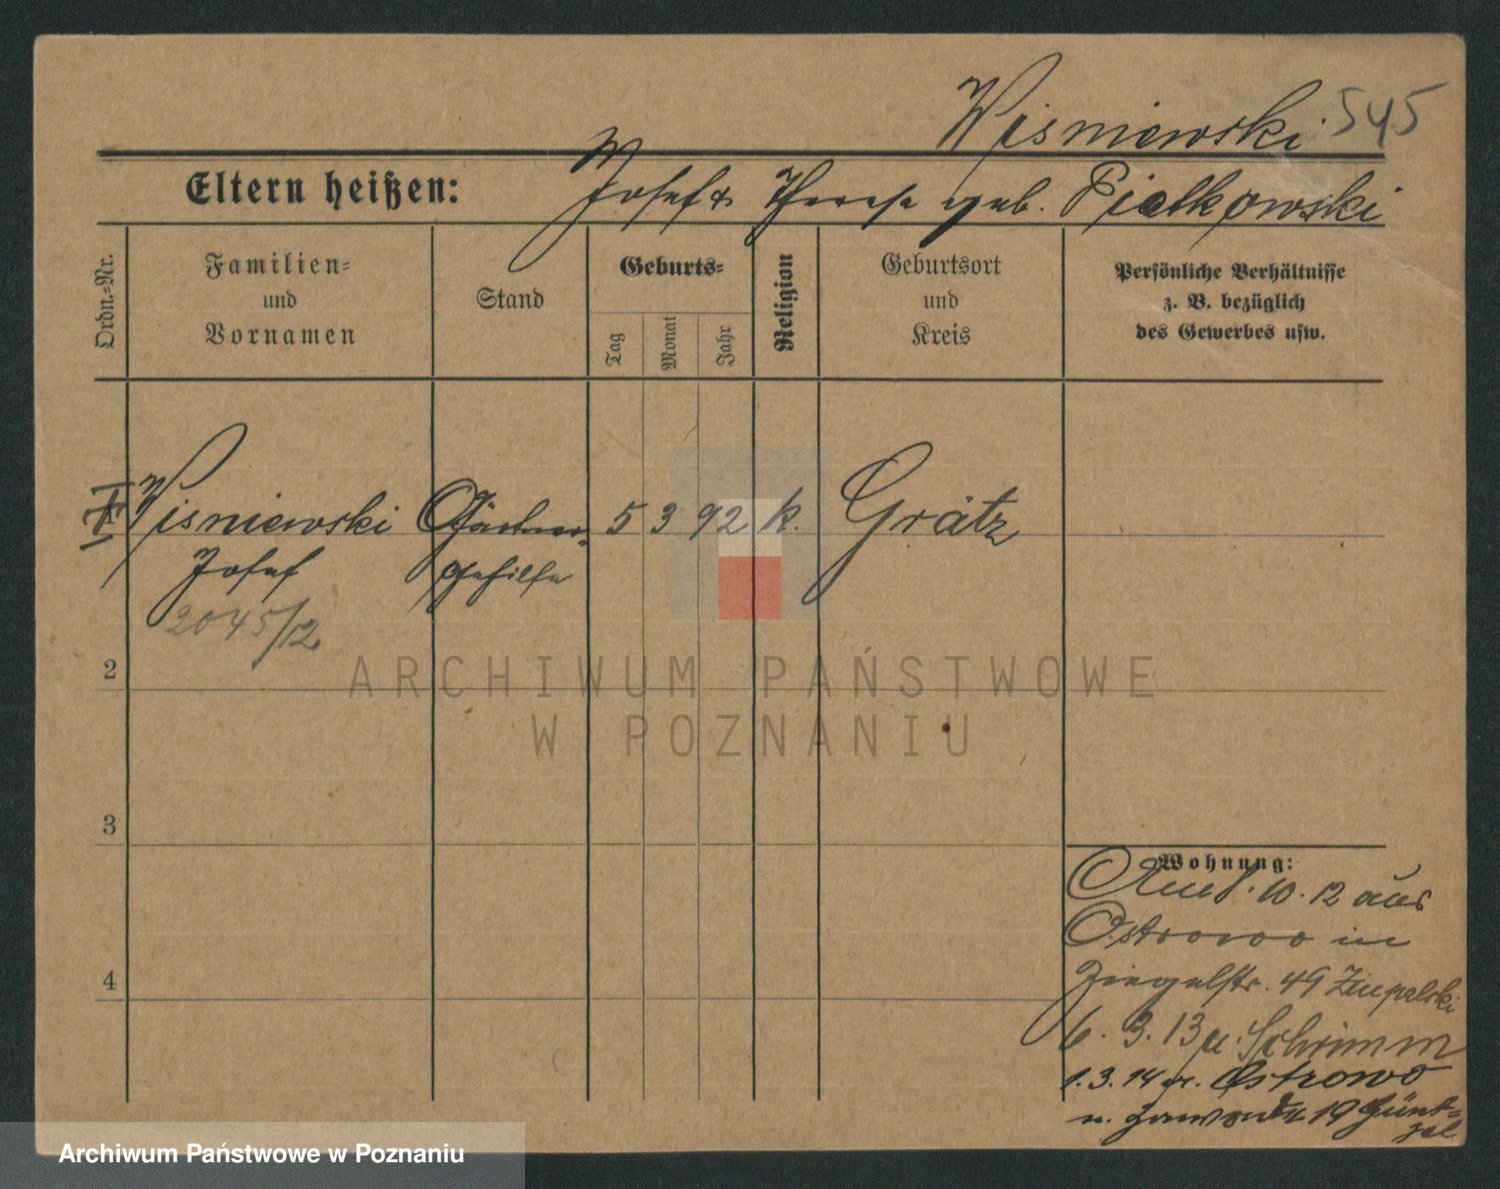 Wisniewski 545
Eltern heißen: Josef & Therese geb. Piatkowski
Ordn.-Nr.
Familien-
und
Vornamen
Stand
Geburts-
Tag
Monat
Jahr
Religion
Geburtsort
und
Kreis
Persönliche Verhältnisse
z. B. bezüglich
des Gewerbes usw.
Wisniewski Gärtner- 5 3 92 k. Grätz
Josef gehilfe
2045/12
2
3
4
Wohnung:
10. 12 aus
Ostrowo in
Ziegelstr. 49
6. 3. 13 n. Schrimm
1. 3. 14 v. Ostrowo
n. 19
ARCHIWUM PAŃSTWOWE
W POZNANIU
Archiwum Państwowe w Poznaniu